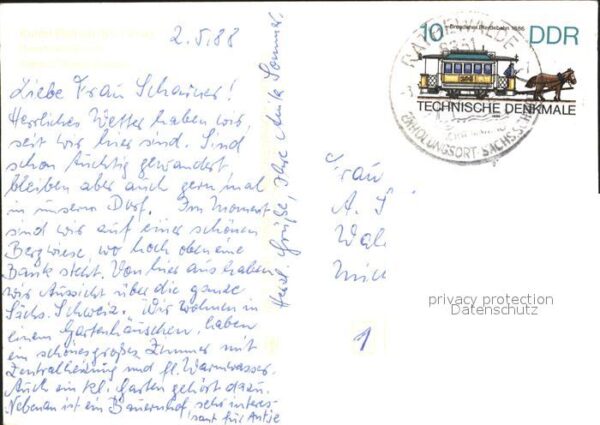 2.5.88
Liebe Frau Schauer!
Herrliches Wetter haben wir,
seit wir hier sind. Sind
schon tüchtig gewandert,
bleiben aber auch gern mal
in unserm Dorf. Im Moment
sind wir auf einer schönen
Bergwiese, wo hoch oben eine
Bank steht. Von hier aus haben
wir Aussicht über die ganze
Sächs. Schweiz. Wir wohnen in
einem Gartenhäuschen, haben
ein schönes großes Zimmer mit
Zentralheizung und fl. Warmwasser.
Auch ein kl. Garten gehört dazu.
Nebenan ist ein Bauernhof, sehr interes-
sant für Antje
Herzl. Grüße, Ihre Anita Sommer
Frau
A. S
Wal
1
10 Dresdner Pferdebahn 1886 DDR
TECHNISCHE DENKMALE
RATHEWALDE
8351
ERHOLUNGSORT SÄCHS. SCH
privacy protection
Datenschutz